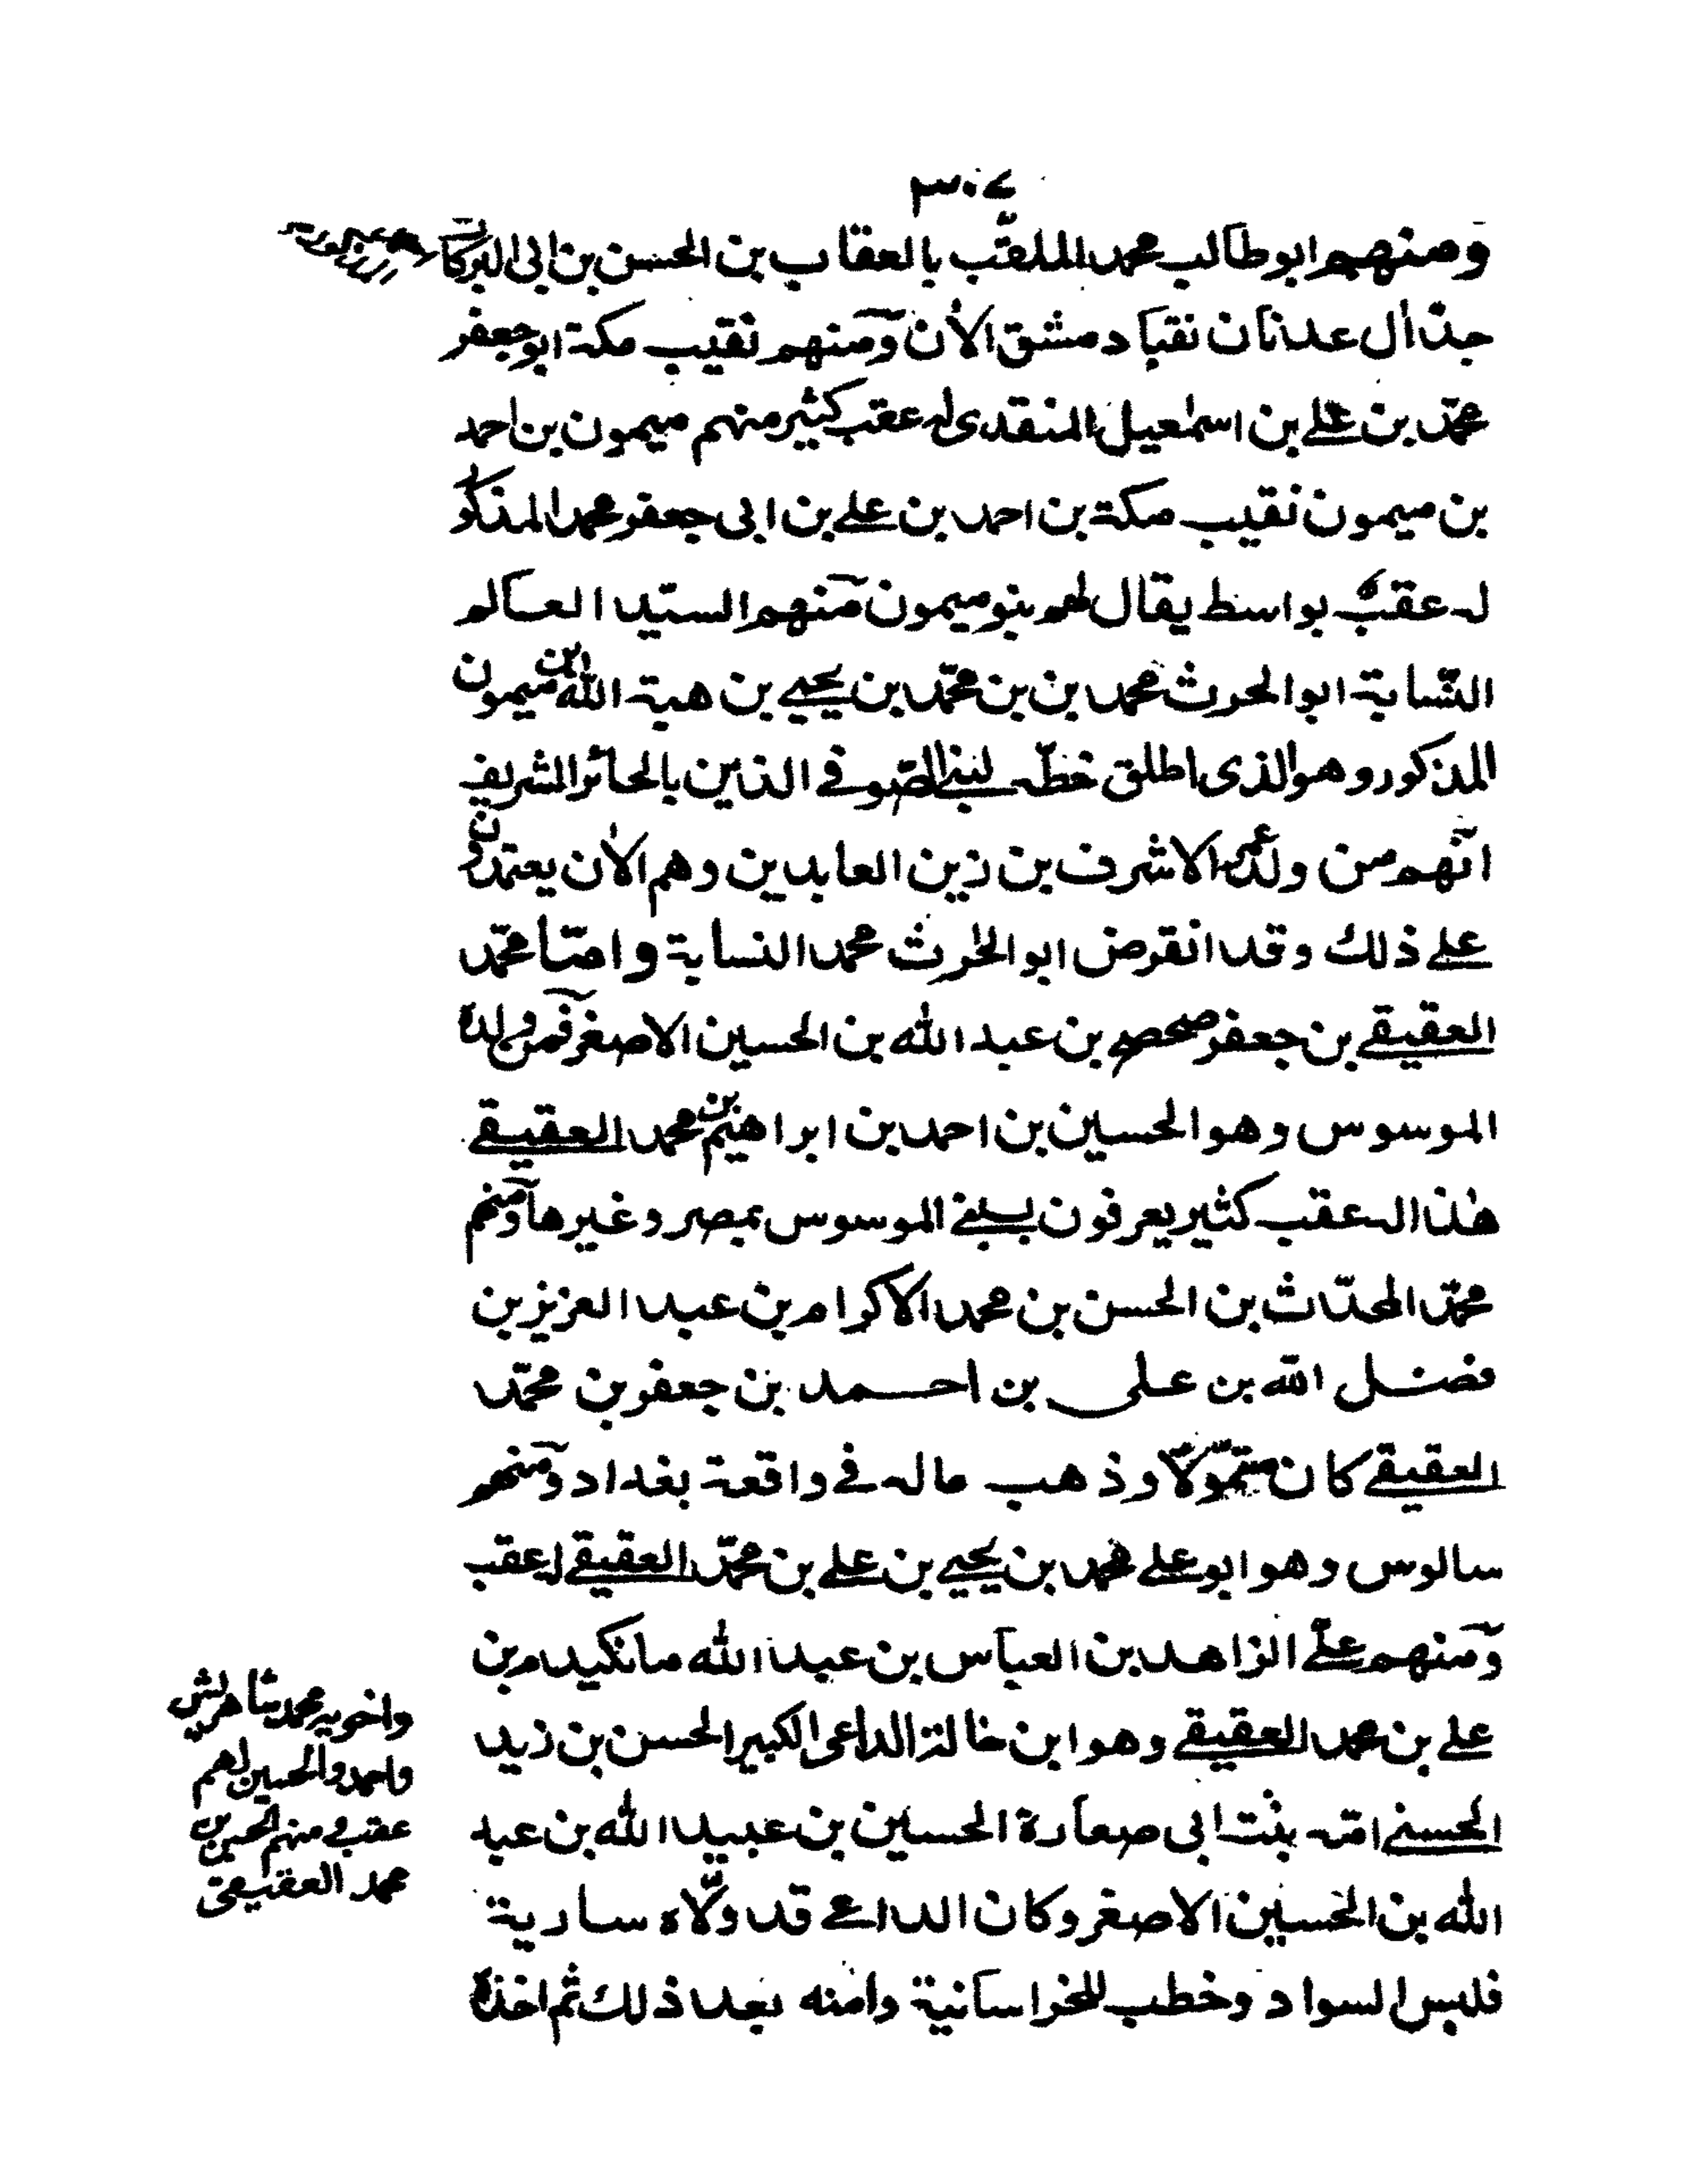 ٣٠٤
ومنهم ابو طالب محمد الملقّب بالعقاب بن الحسن بن ابى البركات
جدّ اٰل عدنان نقبا دمشق الاٰن ومنهم نقيب مكة ابو جعفر
محمّد بن علے بن اسمٰعيل المنقدى له عقب كثير منهم ميمون بن احمد
بن ميمون نقيب مكة بن احمد بن علے بن ابى جعفر محمد المذكو
له عقبٌ بواسط يقال لهم بنو ميمون منهم السيّد العالم
النسّابة ابو الحرث محمد بن بن محمّد بن يحيے بن هبة الله ابن ميمون
المذكور وهو الذى اطلق خطّه لبنے الصّوفے الذين بالحائر الشريف
انّهم من ولد عمر الاشرف بن زين العابدين وهم الاٰن يعتمدون
علے ذلك وقد انقرض ابو الحٰرث محمد النسابة وامّا محمّد
العقيقے بن جعفر صحصح بن عبد الله بن الحسين الاصغر فمن ولده
الموسوس وهو الحسين بن احمد بن ابراهيم بن محمد العقيقے
هٰذا له عقب كثير يعرفون ببنے الموسوس بمصر وغيرها ومنهم
محمّد المحدّث بن الحسن بن محمد الاكرام بن عبد العزيز بن
فضل الله بن على بن احمد بن جعفر بن محمّد
العقيقے كان متموّلًا وذهب ماله فے واقعة بغداد ومنهم
سالوس وهو ابو علے محمد بن يحيے بن علے بن محمّد العقيقے له عقب
ومنهم علےّ الزاهد بن العباس بن عبد الله مانكيدم بن
علے بن محمد العقيقے وهو ابن خالة الداعى الكبير الحسن بن زيد
الحسنے امّه بنت ابى صعارة الحسين بن عبيد الله بن عبد
الله بن الحسين الاصغر وكان الداعے قد ولّاه سارية
فلبس السواد وخطب للخراسانية وامنه بعد ذلك ثم اخذه
واخويه محمد شاهريش
واحمد والحسين لهم
عقب ومنهم الحسين بن
محمد العقيقى